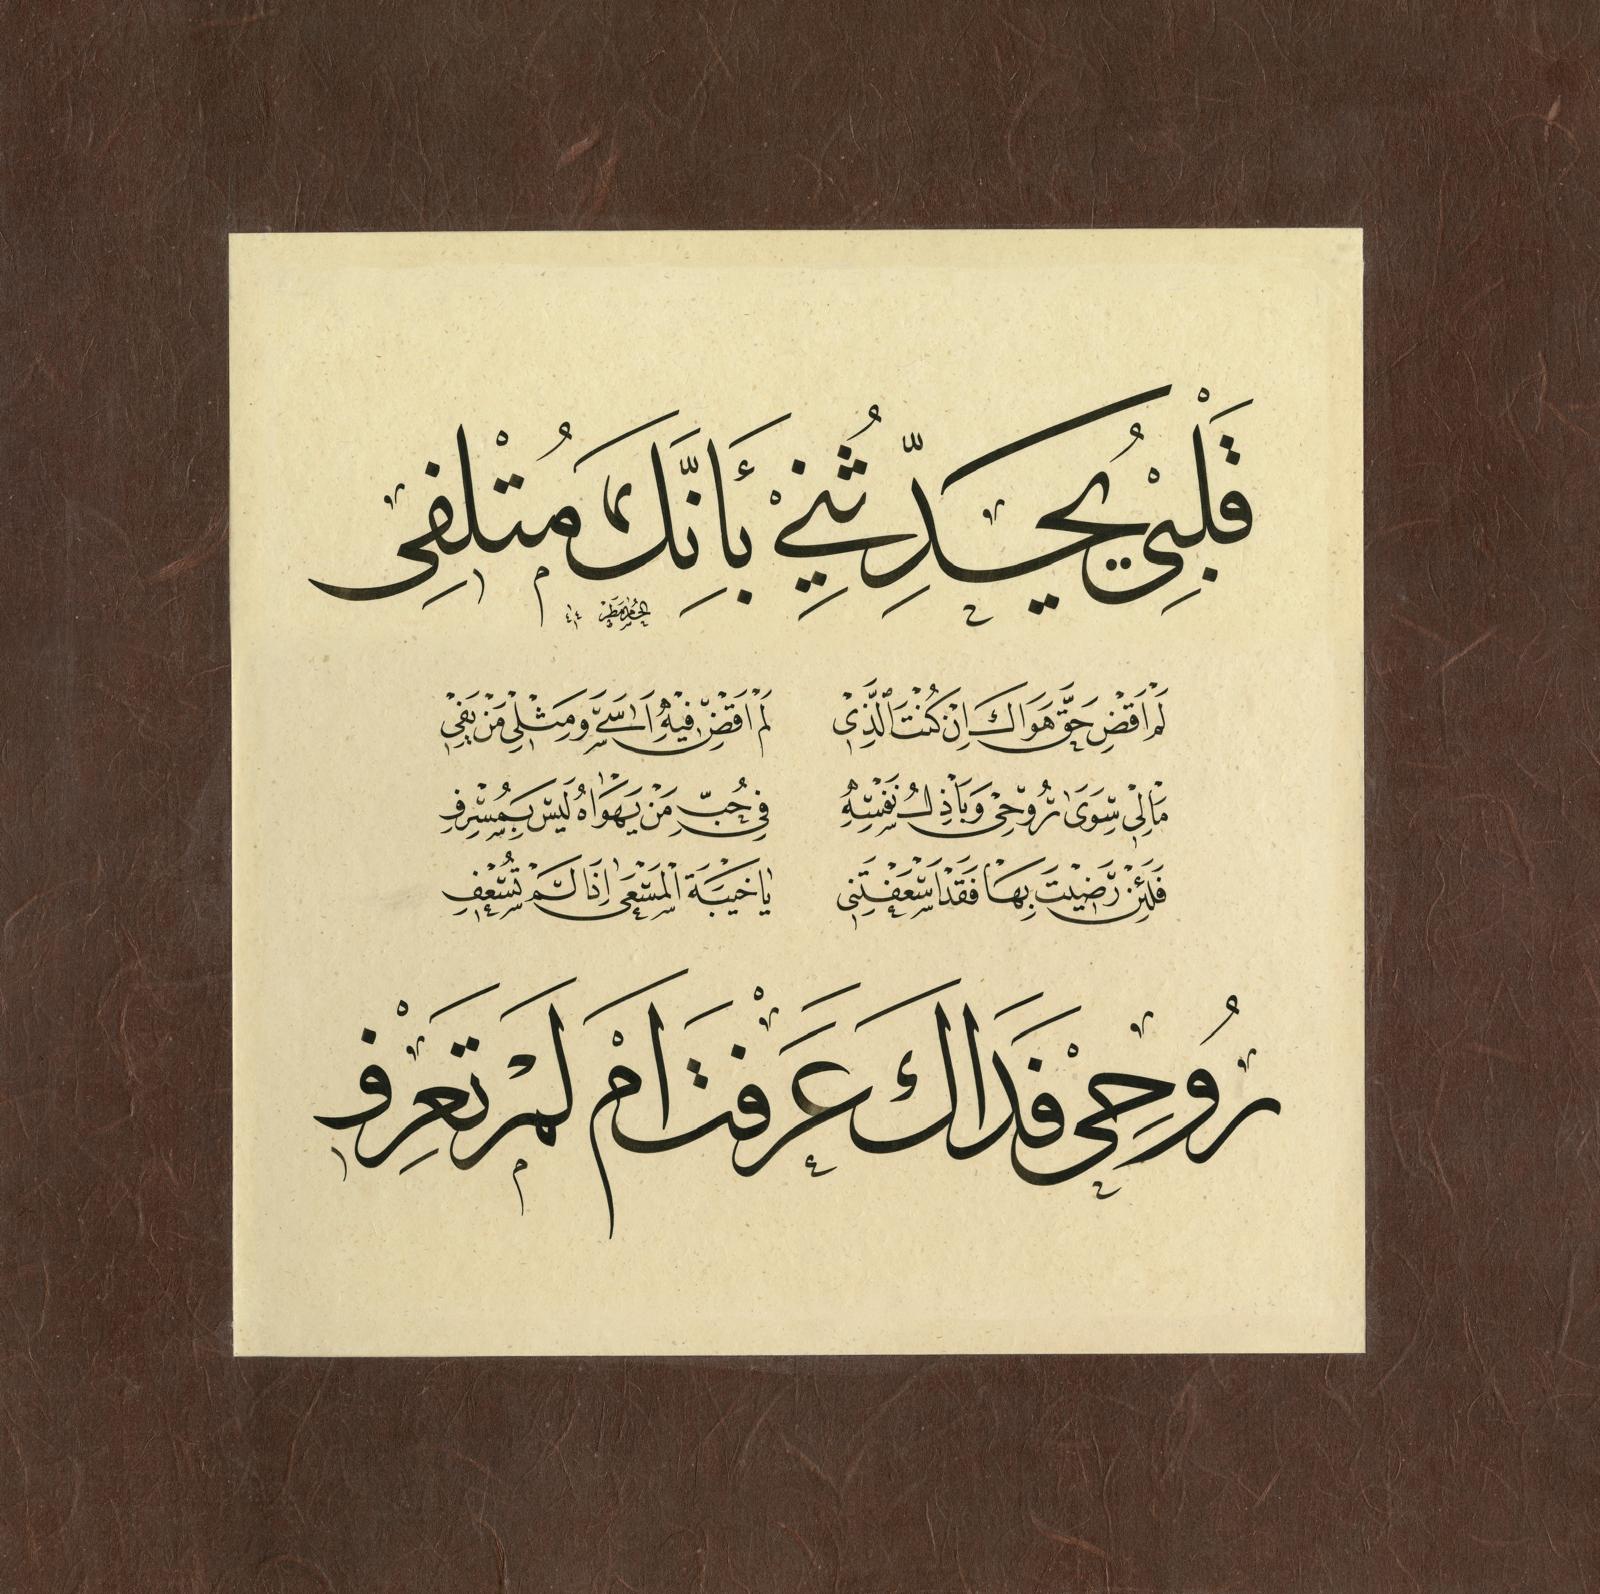 قَلْبِي يُحَدِّثُنِي بِأَنَّكَ مُتْلِفِي
لَمْ اَقْضِ حَقَّ هَوَاكَ اِنْ كُنْتَ الَّذِي لَمْ اَقْضِ فِيْهِ اَسًى وَمِثْلِي مَنْ يَفِي
مَا لِيْ سِوَى رُوْحِيْ وَبَاذِلُ نَفْسِهِ فِي حُبِّ مَنْ يَهْوَاهُ لَيْسَ بِمُسْرِفِ
فَلَئِنْ رَضِيْتَ بِهَا فَقَدْ اَسْعَفْتَنِي يَا خَيْبَةَ الْمَسْعَى اِذَا لَمْ تُسْعِفِ
رُوْحِيْ فَدَاكَ عَرَفْتَ اَمْ لَمْ تَعْرِفْ